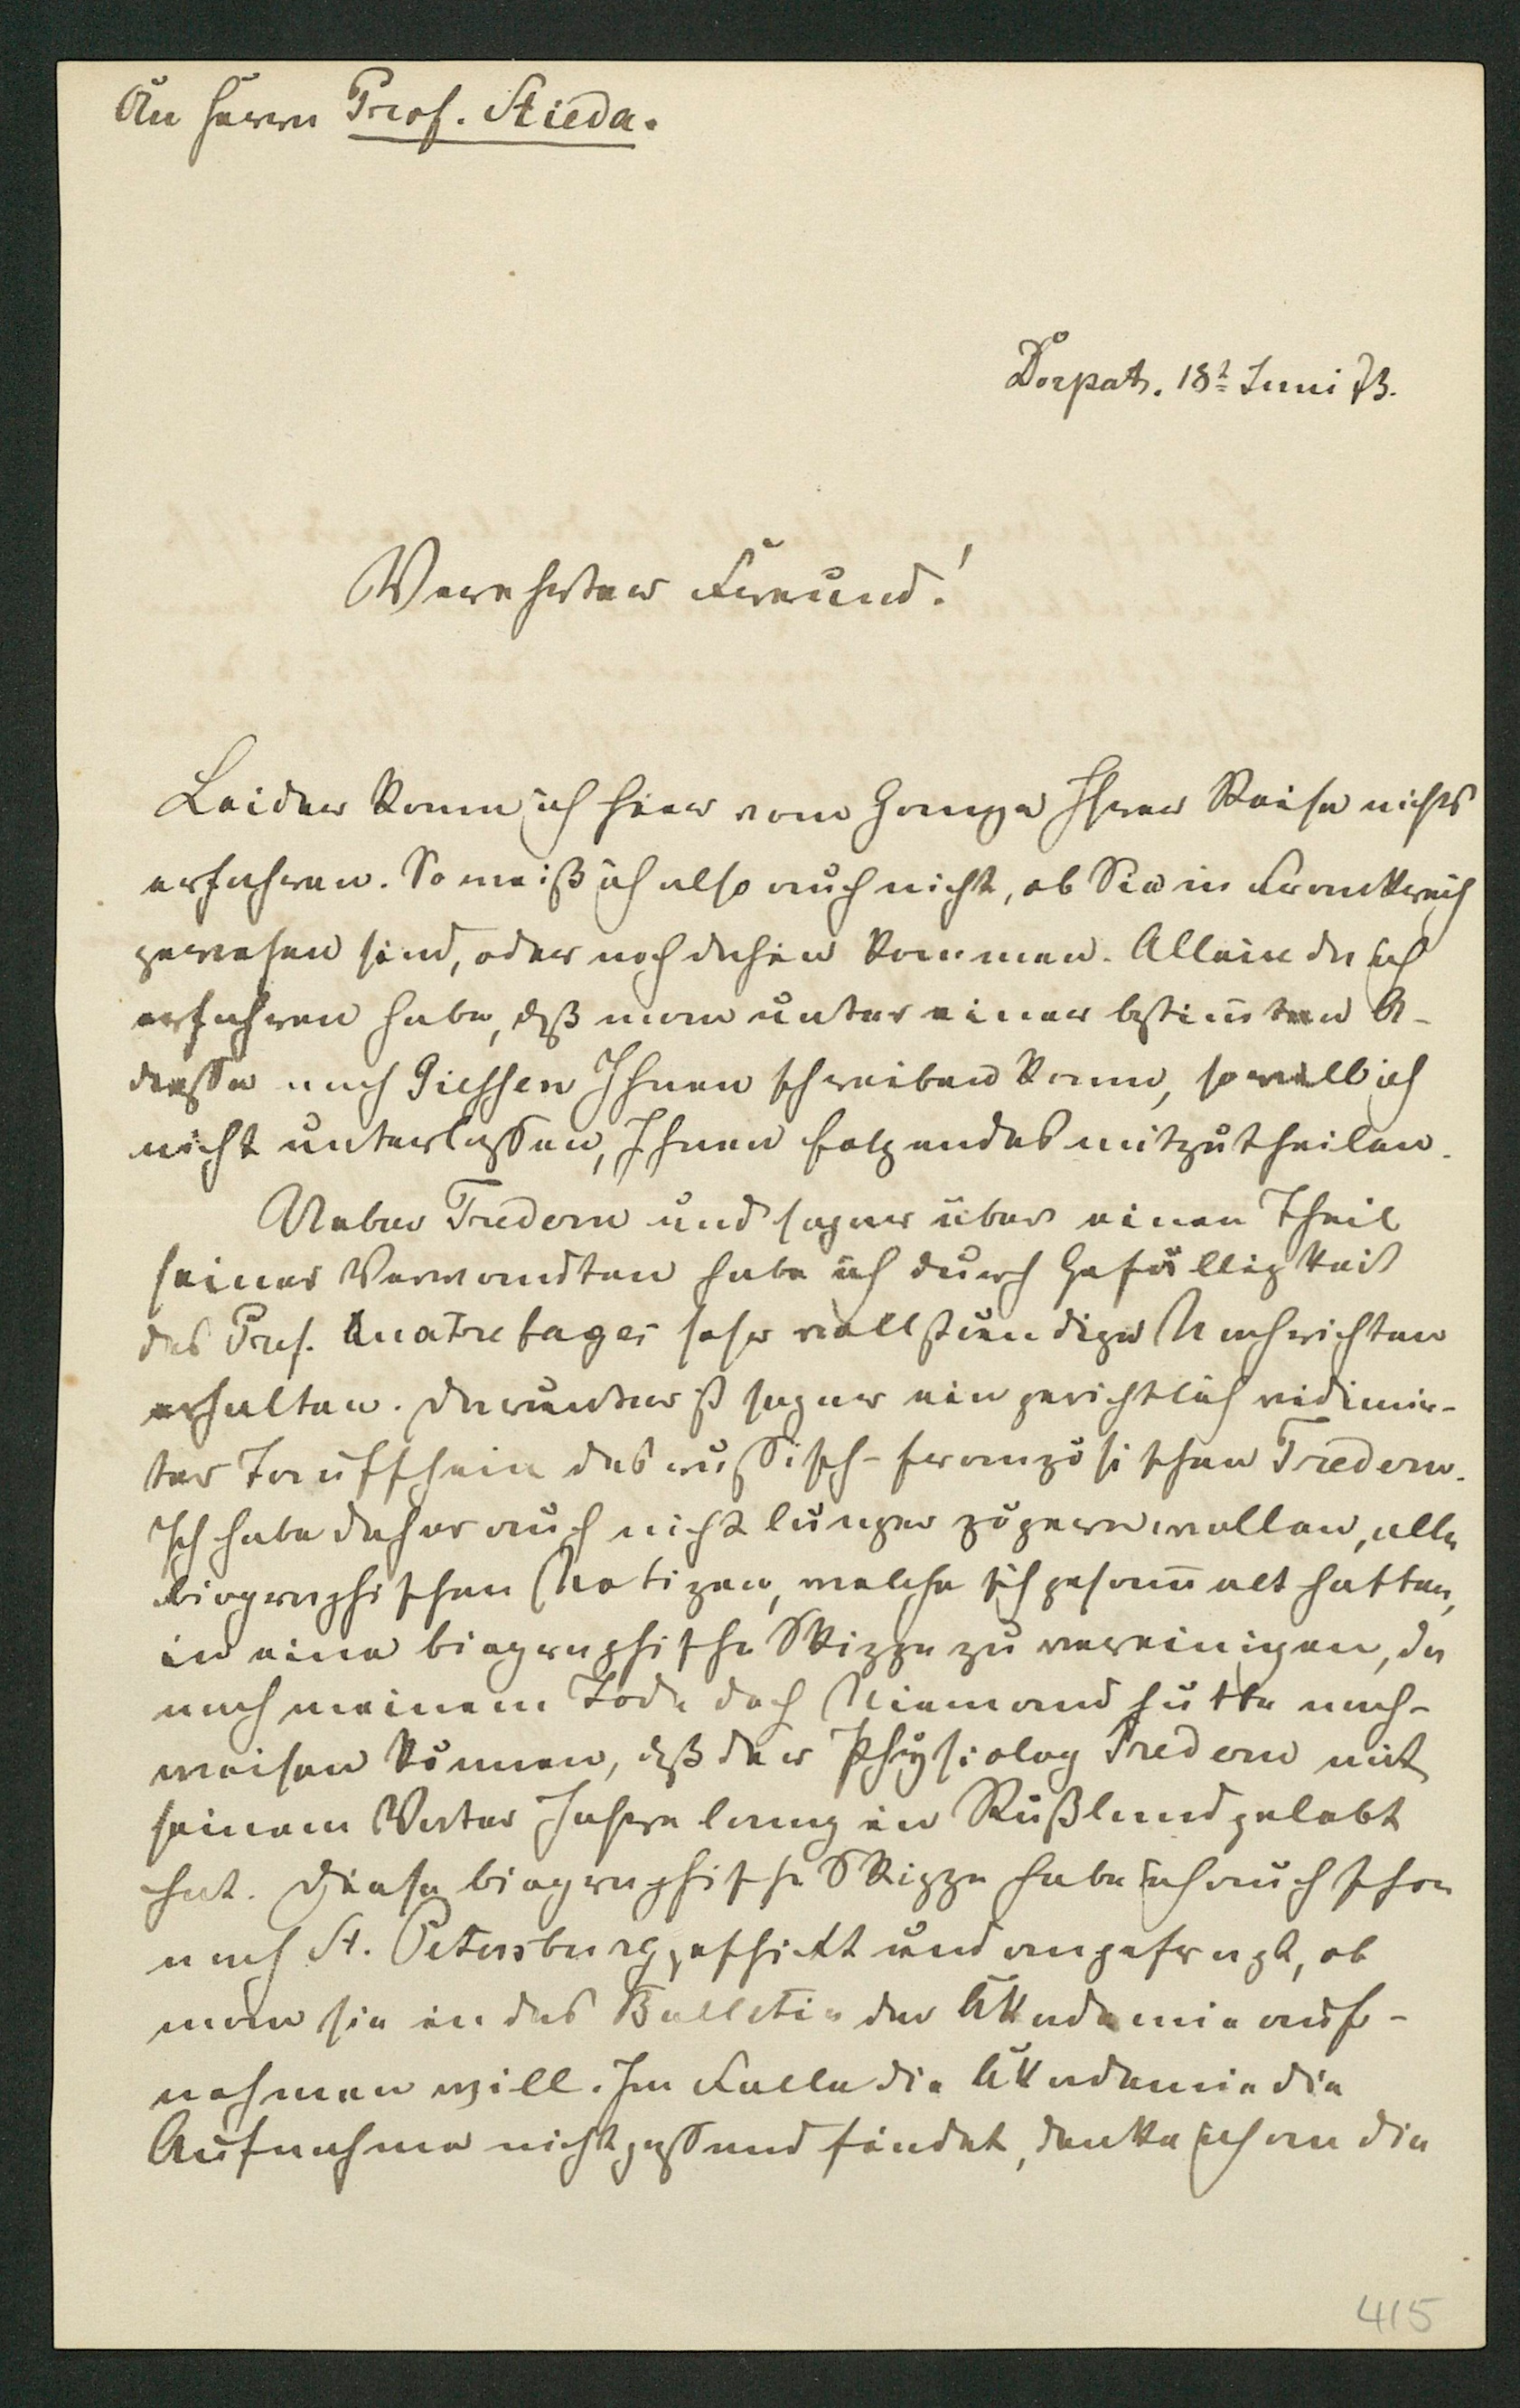 An Herrn Prof. Stieda.
Dorpat. 18t Juni 73.
Verehrter Freund!
Leider kann ich hier vom Gange Ihrer Reise nichts
erfahren. So weiß ich also auch nicht, ob Sie in Frankreich
gewesen sind, oder noch dahin kommen. Allein da ich
erfahren habe, daß man unter einer bestim̅ten A-
dresse nach Giessen Ihnen schreiben kann, so will ich
nicht unterlassen, Ihnen folgendes mitzutheilen.
Ueber Tredern und sogar über einen Theil
seiner Verwandten habe ich durch Gefälligkeit
des Prof. Quatrefages sehr vollständige Nachrichten
erhalten. Darunter ist sogar ein gerichtlich vidimir-
ter Taufschein des russisch-französischen Tredern.
Ich habe daher auch nicht länger zögern wollen, alle
biographischen Notizen, welche sich gesam̅elt hatten,
in eine biographische Skizze zu vereinigen, da
nach meinem Tode doch Niemand hätte nach-
weisen können, daß der Physiolog Tredern mit
seinem Vater Jahre lang in Rußland gelebt
hat. Diese biographische Skizze habe ich auch schon
nach St. Petersburg geschickt und angefragt, ob
man sie in das Bulletin der Akademie auf-
nehmen will. Im Falle die Akademie die
Aufnahme nicht passend findet, denke ich an die
415